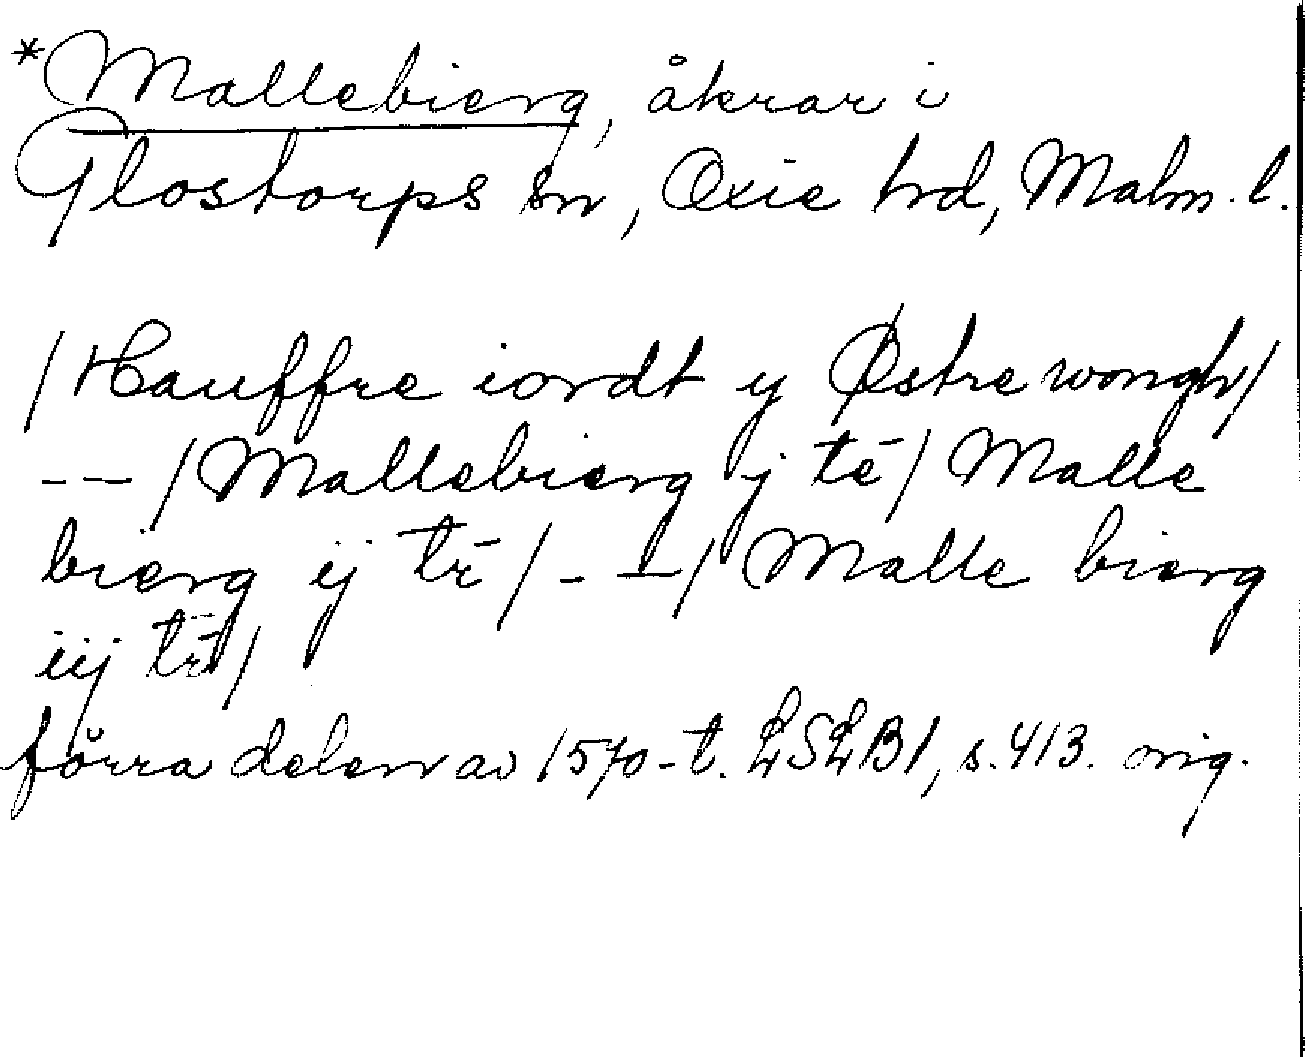 *Mallebierg, åkrar i
Glostorps sn, Oxie hrd, Malm. l.
/Hauffre iordt y Østre wongh/
-- /Mallebierg j tē/ Malle
bierg ij tr̄/ - - / Malle bierg
iij tr̄/
förra delen av 1570-t. LSLB1, s. 413. orig.